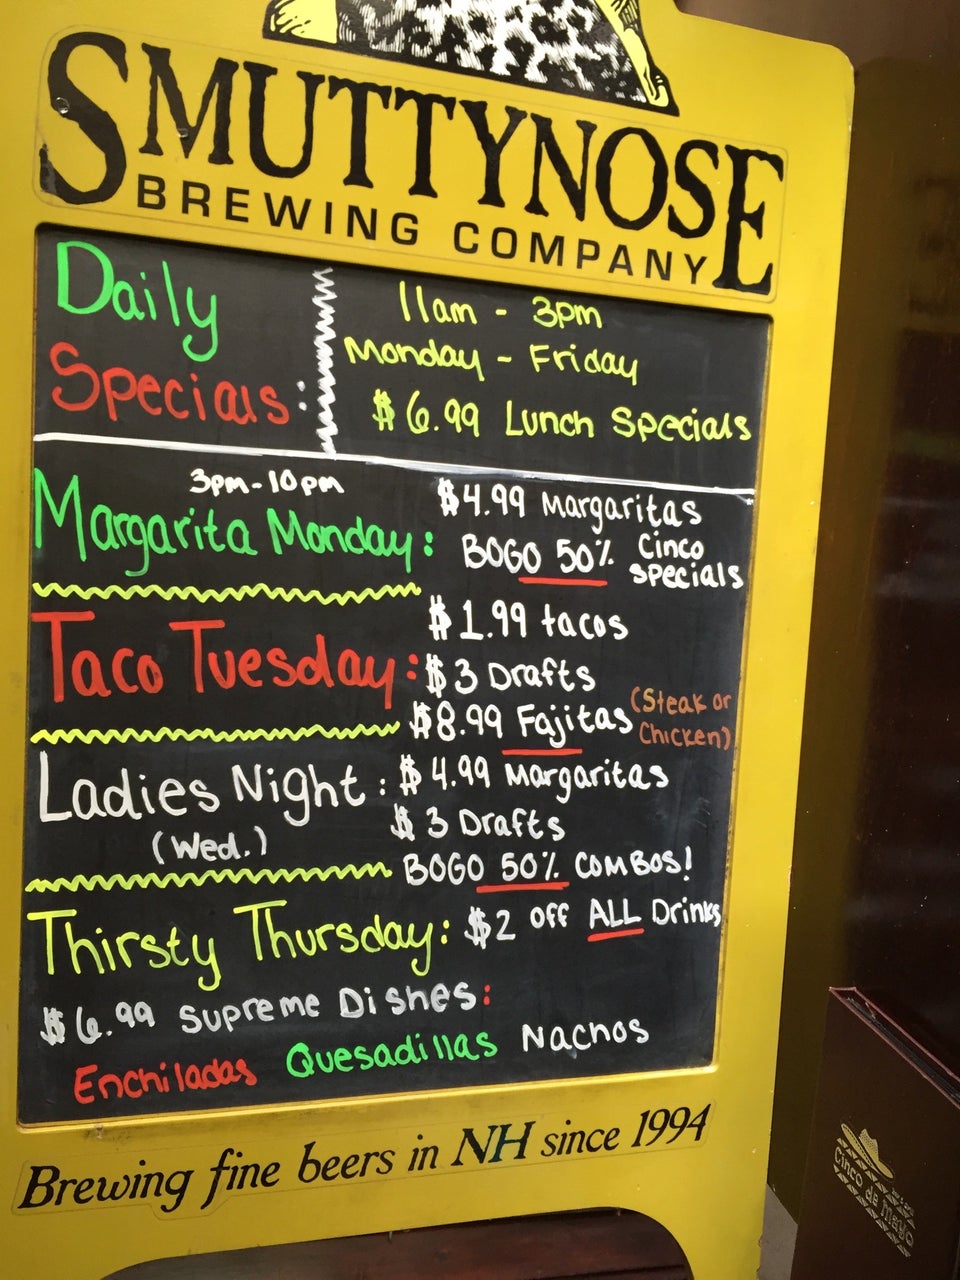 SMUTTYNOSE
BREWING COMPANY
Daily
Specials:
11am - 3pm
Monday - Friday
$6.99 Lunch Specials
3pm-10pm
Margarita Monday:
$4.99 Margaritas
BOGO 50% Cinco Specials
Taco Tuesday:
$1.99 tacos
$3 Drafts
$8.99 Fajitas (Steak or Chicken)
Ladies Night:
(Wed.)
$4.99 Margaritas
$3 Drafts
BOGO 50% COMBOS!
Thirsty Thursday: $2 off ALL Drinks
$6.99 Supreme Dishes:
Enchiladas Quesadillas Nachos
Brewing fine beers in NH since 1994
Cinco de Mayo